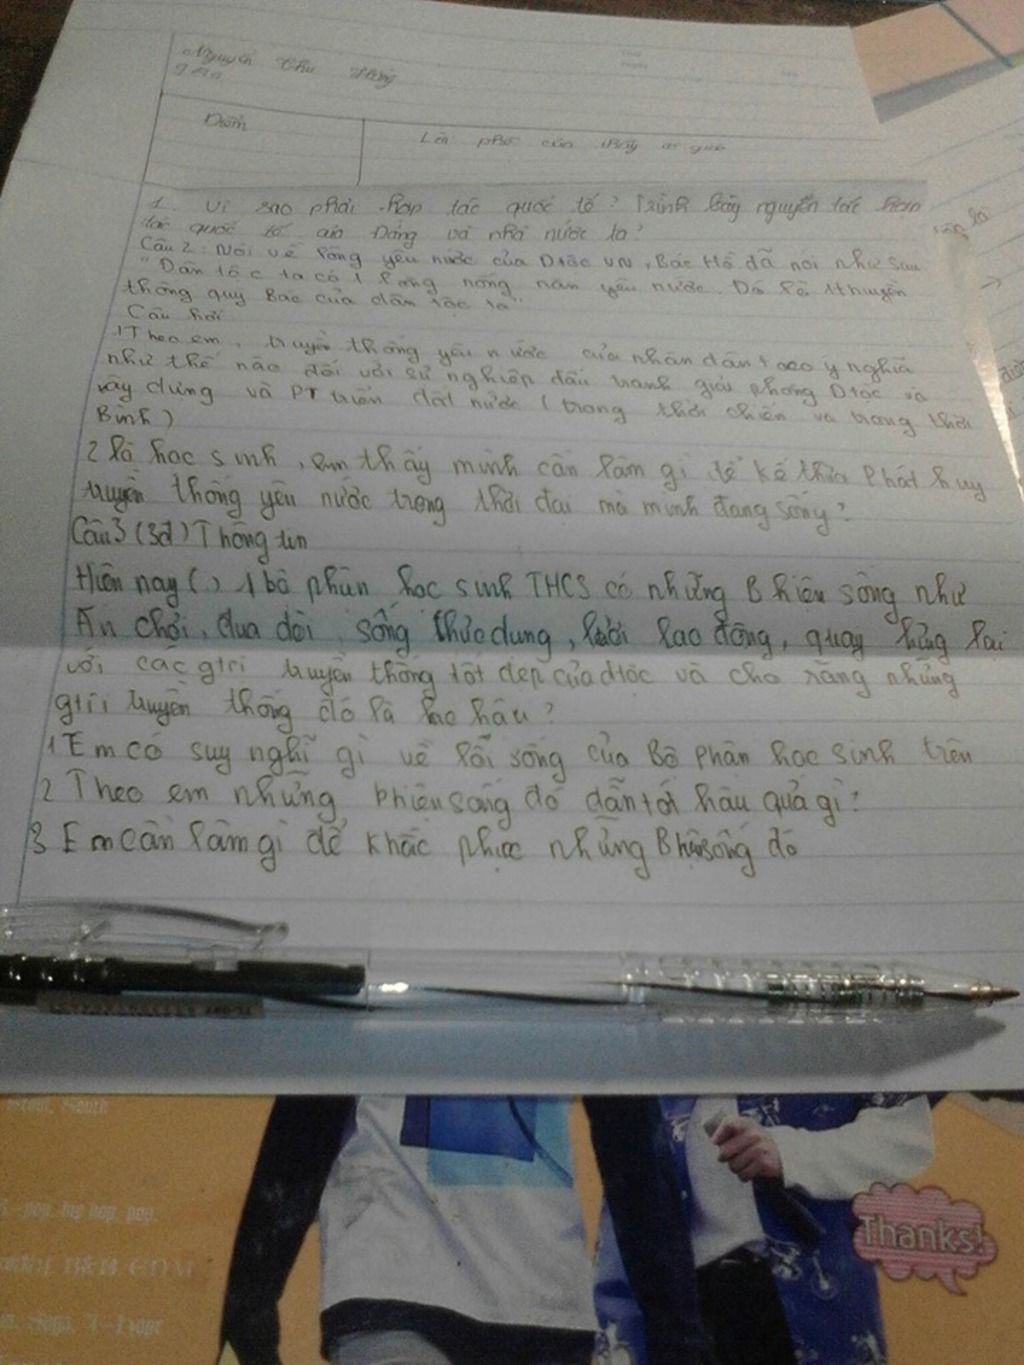 Nguyễn Thu
Điểm
Lời phê của thầy cô giáo
1. Vì sao phải hợp tác quốc tế? Trình bày nguyên tắc hợp
tác quốc tế của Đảng và nhà nước ta?
Câu 2: Nói về lòng yêu nước của Dtộc VN, Bác Hồ đã nói như sau
"Dân tộc ta có 1 lòng nồng nàn yêu nước. Đó là 1 truyền
thống quý Báu của dân tộc ta"
Câu hỏi
1 Theo em, truyền thống yêu nước của nhân dân ta có ý nghĩa
như thế nào đối với sự nghiệp đấu tranh giải phóng Dtộc và
xây dựng và PT triển đất nước (trong thời chiến và trong thời
Bình)
2 là học sinh, em thấy mình cần làm gì để kế thừa Phát huy
truyền thống yêu nước trong thời đại mà mình đang sống?
Câu 3 (3đ) Thông tin
Hiện nay ( ) 1 bộ phận học sinh THCS có những B hiện sống như
Ăn chơi, đua đòi, sống thực dụng, lười lao động, quay lưng lại
với các gtrị truyền thống tốt đẹp của dtộc và cho rằng những
gtrị truyền thống đó là lạc hậu?
1 Em có suy nghĩ gì về lối sống của Bộ phận học sinh trên
2 Theo em những bhiện sống đó dẫn tới hậu quả gì?
3 Em cần làm gì để khắc phục những Bhiện sống đó
Thanks!